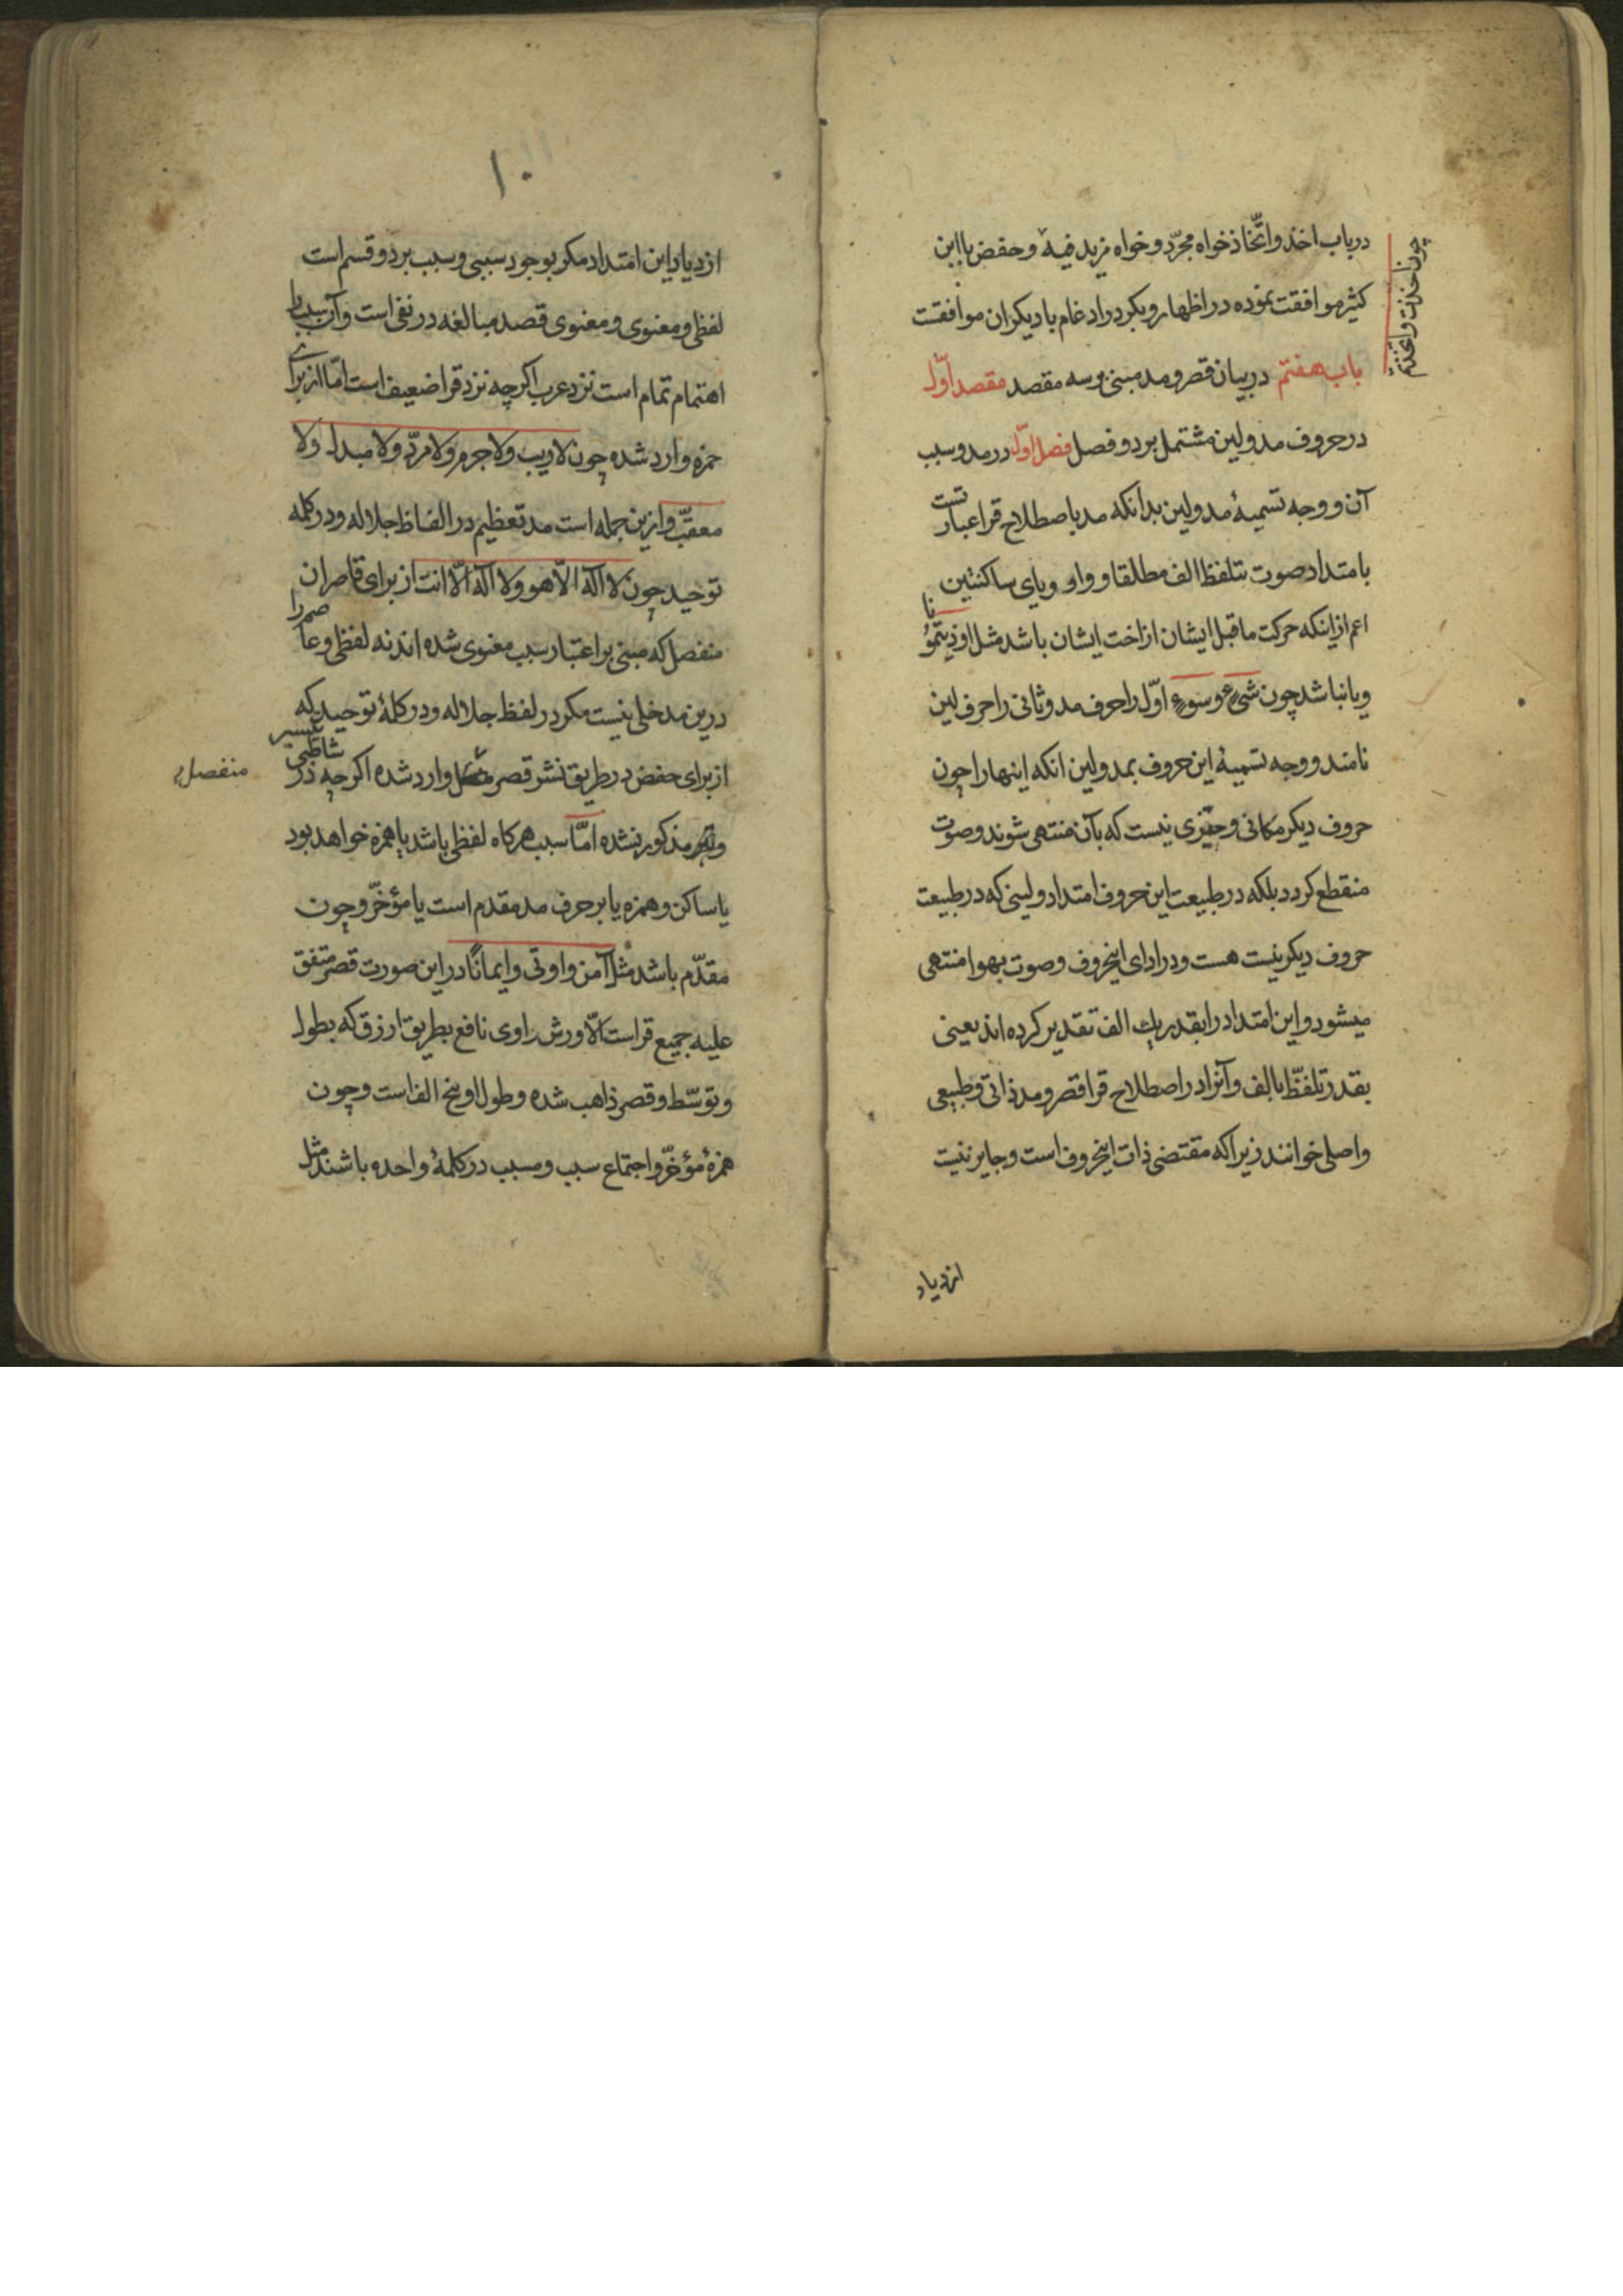 در باب اخذ و اتّخاذ خواه مجرّد و خواه مزید فیه و حفص با ابن
چون اخذت و اتخذتم
کثیر موافقت نموده در اظهار و بکر در ادغام با دیکران موافقت
باب هفتم در بیان قصر و مد مبنی بر سه مقصد مقصد اوّل
در حروف مد و لین مشتمل بر دو فصل فصل اوّل در مد و سبب
آن و وجه تسمیهٔ مد و لین بدانکه مد باصطلاح قرا عبارتست
بامتداد صوت بتلفظ الف مطلقا و واو و یای ساکنتین
اعم از اینکه حرکت ماقبل ایشان از اخت ایشان باشد مثل اوذینا
و یا نباشد چون شیء و سوء اوّل را حرف مد و ثانی را حرف لین
نامند و وجه تسمیهٔ این حروف بمد و لین انکه اینها را چون
حروف دیکر مکانی و حیّزی نیست که بآن منتهی شوند و صوت
منقطع کردد بلکه در طبیعت این حروف امتداد و لینی که در طبیعت
حروف دیکر نیست هست و در ادای اینحروف و صوت بهوا منتهی
میشود و این امتداد را بقدر یك الف تقدیر کرده اند یعنی
بقدر تلفّظ بالف و آنرا در اصطلاح قرا قصر و مد ذاتی و طبیعی
و اصلی خوانند زیرا که مقتضی ذات اینحروف است و جایز نیست
ازدیاد
۱۰
ازدیاد این امتداد مکر بوجود سببی و سبب بر دو قسم است
لفظی و معنوی و معنوی قصد مبالغه در نفی است و آن سبب با
اهتمام تمام است نزد عرب اکر چه نزد قرا ضعیف است امّا از برای
حمزه وارد شده چون لا ریب و لا جرم و لا مردّ و لا مبدل و لا
معقّب و ازین جمله است مد تعظیم در الفاظ جلاله و در کلمه
توحید چون لا اله الّا هو و لا اله الّا انت از برای قاصران
منفصل که مبنی بر اعتبار سبب معنوی شده اند نه لفظی و
درین مدخلی نیست مکر در لفظ جلاله و در کلمهٔ توحید که
از برای حفص در طریق نشر قصر وارد شده اکر چه در شاطبی
منفصل
و تیسیر مذکور نشده امّا سبب هرکاه لفظی باشد یا همزه خواهد بود
یا ساکن و همزه یا بر حرف مد مقدم است یا مؤخّر و چون
مقدّم باشد مثل آمن و اوتی و ایمانًا در این صورت قصر متفق
علیه جمیع قراست الّا ورش راوی نافع بطریق ارزق که بطول
و توسّط و قصر ذاهب شده و طول او پنج الف است و چون
همزهٔ مؤخّر و اجتماع سبب و مسبب در کلمهٔ واحده باشند مثل